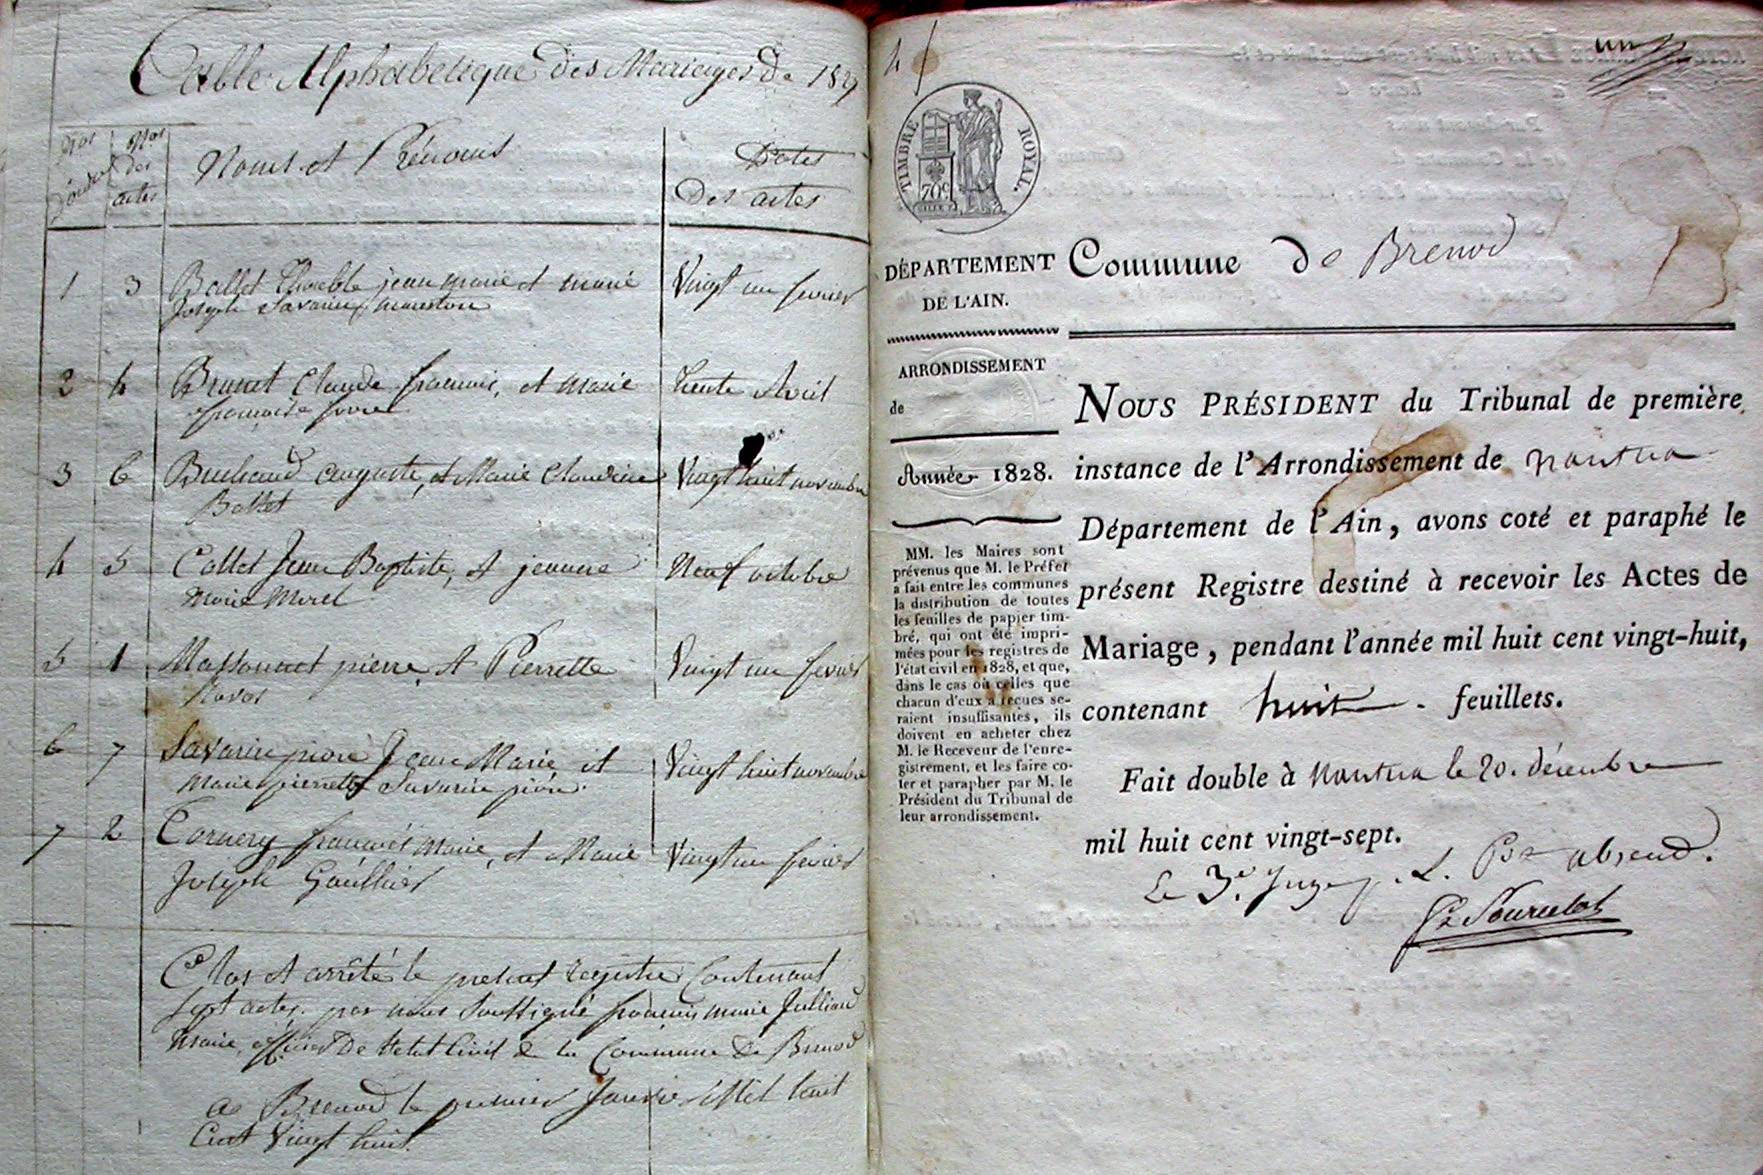 Table Alphabetique des Mariages de 182
Nos d'ordre
Nos des actes
Noms et Prénoms
Dates
Des actes
1 3 Ballet jean marie et marie Vingt un fevrier
Joseph Savarin
2 4 Brunet Claude francois, et Marie trente Avril
francoise
3 6 auguste, et Marie Claudine Vingt huit novembre
Ballet
4 5 Collet Jean Baptiste, et jeanne Neuf octobre
Marie Morel
5 1 Massonnet pierre, et Pierrette Vingt un fevrier
6 7 Savarin Jean Marie et Vingt huit novembre
Marie pierrette Savarin
7 2 francois Marie, et Marie Vingt un fevrier
Joseph
Clos et arrêté le present registre Contenant
Sept actes. par nous Soussigné francois marie Julliard
Maire, officier De l'etat Civil de la Commune de Brenod
a Brenod le premier Janvier Mil huit
Cent Vingt huit.
4
un
TIMBRE ROYAL.
70c
DÉPARTEMENT
DE L'AIN.
Commune de Brenod
ARRONDISSEMENT
de
Année 1828.
MM. les Maires sont
prévenus que M. le Préfet
a fait entre les communes
la distribution de toutes
les feuilles de papier tim-
bré, qui ont été impri-
mées pour les registres de
l'état civil en 1828, et que,
dans le cas où celles que
chacun d'eux a reçues se-
raient insuffisantes, ils
doivent en acheter chez
M. le Receveur de l'enre-
gistrement, et les faire co-
ter et parapher par M. le
Président du Tribunal de
leur arrondissement.
NOUS PRÉSIDENT du Tribunal de première
instance de l'Arrondissement de nantua
Département de l'Ain, avons coté et paraphé le
présent Registre destiné à recevoir les Actes de
Mariage, pendant l'année mil huit cent vingt-huit,
contenant huit feuillets.
Fait double à Nantua le 20. décembre
mil huit cent vingt-sept.
Le 3e. Juge p. l. Pt absent.